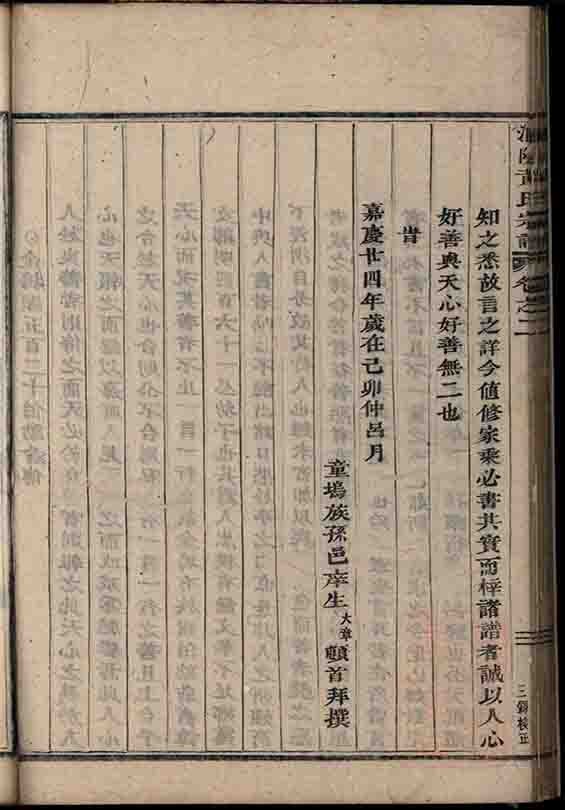 黃氏宗譜 卷之二
三錦校正
知之悉故言之詳今值修家乘必書其實而梓諸譜者誠以人心
好善與天心好善無二也
旹
嘉慶廿四年歲在己卯仲呂月
童塢族孫邑庠生大章頓首拜撰